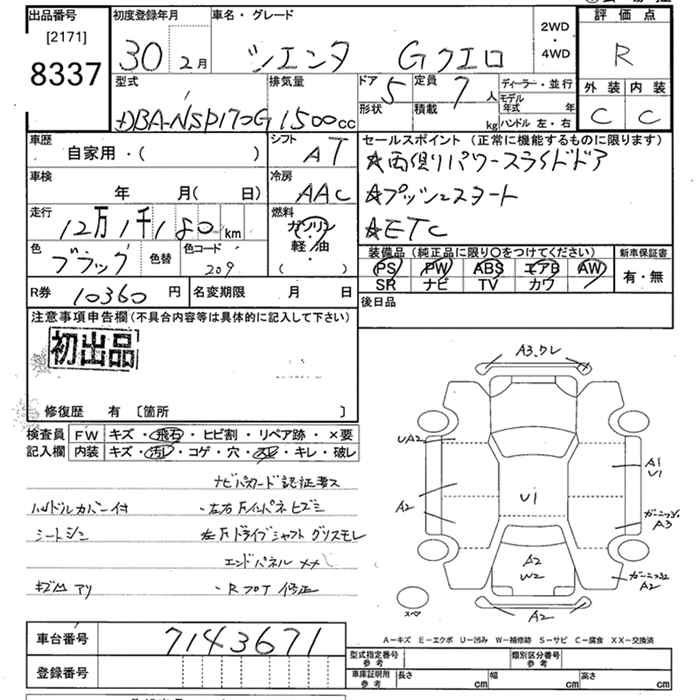 出品番号
[2171]
8337
初度登録年月
30 2月
車名・グレード
シエンタ Gクエロ
2WD
・
4WD
評価点
R
外装 内装
C C
型式
DBA-NSP170G
排気量
1500cc
ドア 5
形状
定員 7人
積載 kg
ディーラー・並行
モデル年式 年
ハンドル 左・右
車歴
自家用・( )
シフト
AT
車検
年 月( 日)
冷房
AAC
走行
12万1千180km
燃料
ガソリン
・
軽油
( )
色
ブラック
色替
色コード
209
セールスポイント(正常に機能するものに限ります)
☆両側パワースライドドア
☆プッシュスタート
☆ETC
装備品(純正品に限り〇をつけてください)
PS PW ABS エアB AW
SR ナビ TV カワ
新車保証書
有・無
R券 10360円
名変期限 月 日
後日品
注意事項申告欄(不具合内容等は具体的に記入して下さい)
初出品
修復歴 有 [箇所 ]
検査員
記入欄
FW キズ・飛石・ヒビ割・リペア跡・×要
内装 キズ・汚レ・コゲ・穴・スレ・キレ・破レ
ハンドルカバー付
シートシン
キズ凹アリ
・左右Fインパネヒズミ
左Fドライブシャフトグリスモレ
・Rフロア修正
A3.ワレ
UA2
A2
U1
A1
U1
A3
A2
W2
A2
A2
スペア
A-キズ E-エクボ U-凹み W-補修跡 S-サビ C-腐食 XX-交換済
車台番号 7143671
登録番号
型式指定番号
参考
類別区分番号
参考
車庫証明用
参考
長さ cm 幅 cm 高さ cm